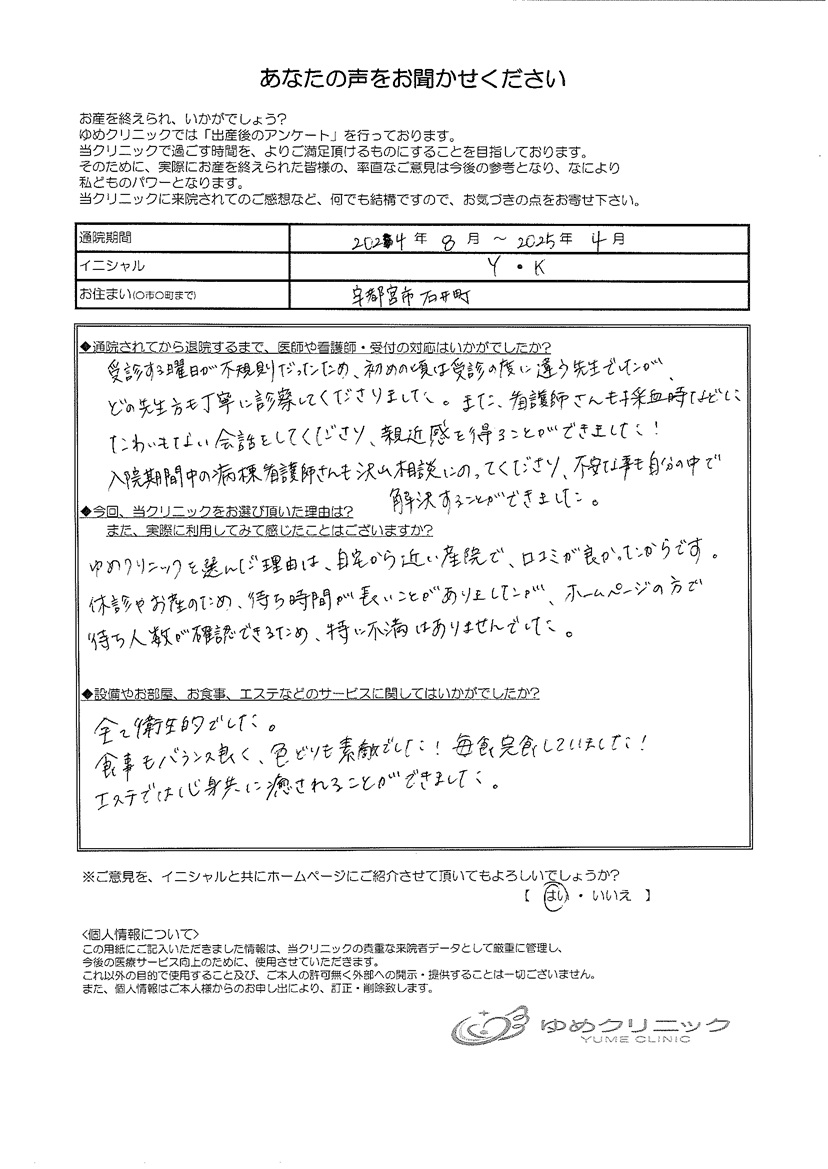 あなたの声をお聞かせください
お産を終えられ、いかがでしょう?
ゆめクリニックでは「出産後のアンケート」を行っております。
当クリニックで過ごす時間を、よりご満足頂けるものにすることを目指しております。
そのために、実際にお産を終えられた皆様の、率直なご意見は今後の参考となり、なにより
私どものパワーとなります。
当クリニックに来院されてのご感想など、何でも結構ですので、お気づきの点をお寄せ下さい。
通院期間 2024年 8月 ~ 2025年 4月
イニシャル Y・K
お住まい(〇市〇町まで) 宇都宮市 石井町
◆通院されてから退院するまで、医師や看護師・受付の対応はいかがでしたか?
受診する曜日が不規則だったため、初めの頃は受診の度に違う先生でしたが、
どの先生方も丁寧に診察してくださりました。また、看護師さんも採血時などに
たわいもない会話をしてくださり、親近感を得ることができました!
入院期間中の病棟看護師さんも沢山相談にのってくださり、不安な事も自分の中で
解決することができました。
◆今回、当クリニックをお選び頂いた理由は?
また、実際に利用してみて感じたことはございますか?
ゆめクリニックを選んだ理由は、自宅から近い産院で、口コミが良かったからです。
休診やお産のため、待ち時間が長いことがありましたが、ホームページの方で
待ち人数が確認できるため、特に不満はありませんでした。
◆設備やお部屋、お食事、エステなどのサービスに関してはいかがでしたか?
全て衛生的でした。
食事もバランス良く、色どりも素敵でした!毎食完食していました!
エステでは心身共に癒されることができました。
※ご意見を、イニシャルと共にホームページにご紹介させて頂いてもよろしいでしょうか?
【 はい ・ いいえ 】
<個人情報について>
この用紙にご記入いただきました情報は、当クリニックの貴重な来院者データとして厳重に管理し、
今後の医療サービス向上のために、使用させていただきます。
これ以外の目的で使用すること及び、ご本人の許可無く外部への開示・提供することは一切ございません。
また、個人情報はご本人様からのお申し出により、訂正・削除致します。
ゆめクリニック
YUME CLINIC